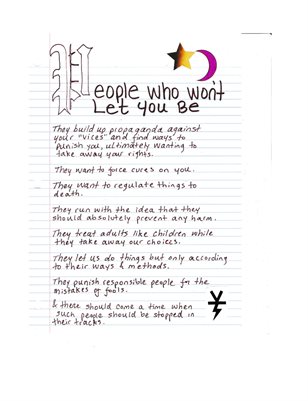 People who won't
Let you Be
They build up propaganda against
your "vices" and find ways to
punish you, ultimately wanting to
take away your rights.
They want to force cures on you.
They want to regulate things to
death.
They run with the idea that they
should absolutely prevent any harm.
They treat adults like children while
they take away our choices.
They let us do things but only according
to their ways & methods.
They punish responsible people for the
mistakes of fools.
& there should come a time when
such people should be stopped in
their tracks.